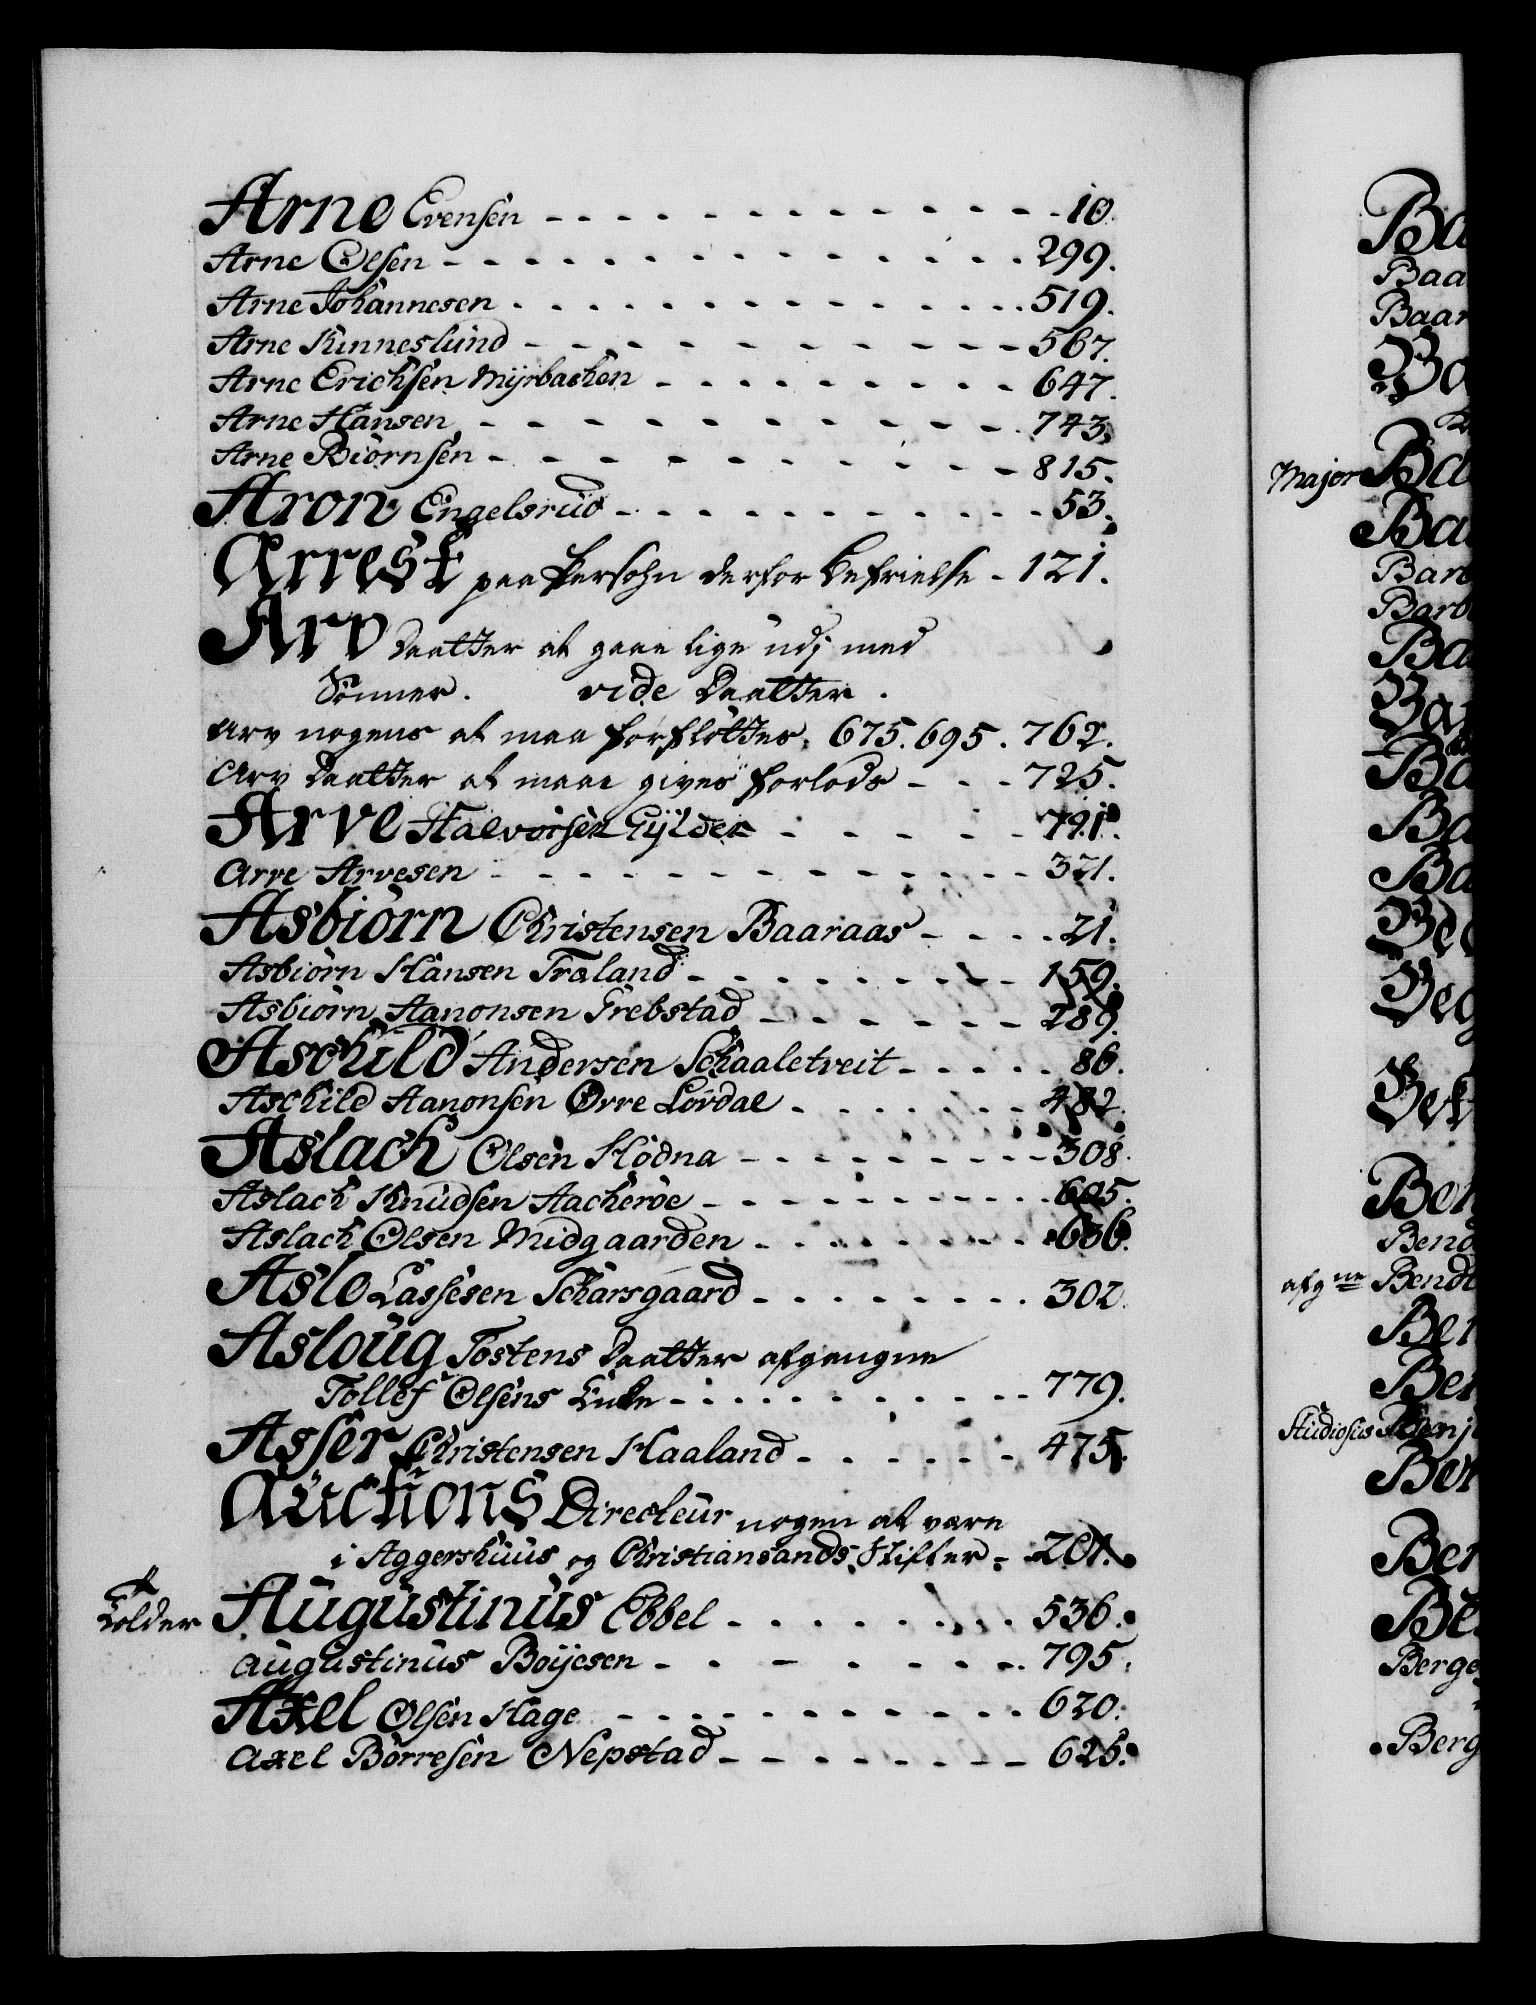 Arne Evensen - - - - - - - - - - - - - - 10.
Arne Olsen - - - - - - - - - - - - - - - 299.
Arne Johannesen . - - - - - - - - - - - - 519.
Arne Kinneslund - - - - - - - - - - - - 567.
Arne Erichsen Myrbachen - - - - - - - - - 647.
Arne Hansen - - - - - - - - - - - . 743.
Arne Biörnsen - - - - - - - - - - - - 815.
Aron Engelsrud - - - - - - - - - - - - 53.
Arrest paa Persohn derfor befrielse - 121.
Arv Daatter at gaae lige udj med
Sönner. vide Daatter.
Arv nogens at maa forfløttes. 675. 695. 762.
Arv Daatter at maae gives forlods - - - 725.
Arve Halvorsen Gylder - - - - - - 791.
Arve Arvesen - - - - - - - - - - - - 321.
Asbiörn Christensen Baaraas - - - - 21.
Asbiörn Hansen Træland - - - - - - - - 159.
Asbiörn Aanonsen Trebstad - - - - - - - 289.
Aschild Andersen Schaaletveit - - - - - 86.
Aschild Aanonsen Ørre Lövdal - - - - - - - 482.
Aslach Olsen Hödna - - - - - - - - - 308.
Aslach Knudsen Aacheröe - - - - - - - - - - 605.
Aslach Olsen Midgaarden - - - - - - - - 636.
Asle Lassesen Scharsgaard - - - - - - - - . 302.
Asloug Tostens Daatter afgangne
Tollef Olsens Enke - - - - - - - - - - - 779.
Asser Christensen Haaland - - - - - - 475.
Auctions Directeur nogen at være
i Aggershuus og Christiansands Stifter - 201.
Kolder Augustinus Ebbel - - - - - - - - 536.
Augustinus Böyesen - - - - - - - - . 795.
Axel Olsen Hage - - - - - - - - - - - 620.
Axel Börresen Nepstad - - - - - - - - 625.
Ba
Baa
Baar
Ba
Major Ba
Ba
Barb
Ba
Ba
Ba
Ba
Ba
Be
Beg
Bek
Ben
Bend
afgne Bendt
Ber
Ber
Studiosus Benj
Ber
Ber
Be
Berge
Berg